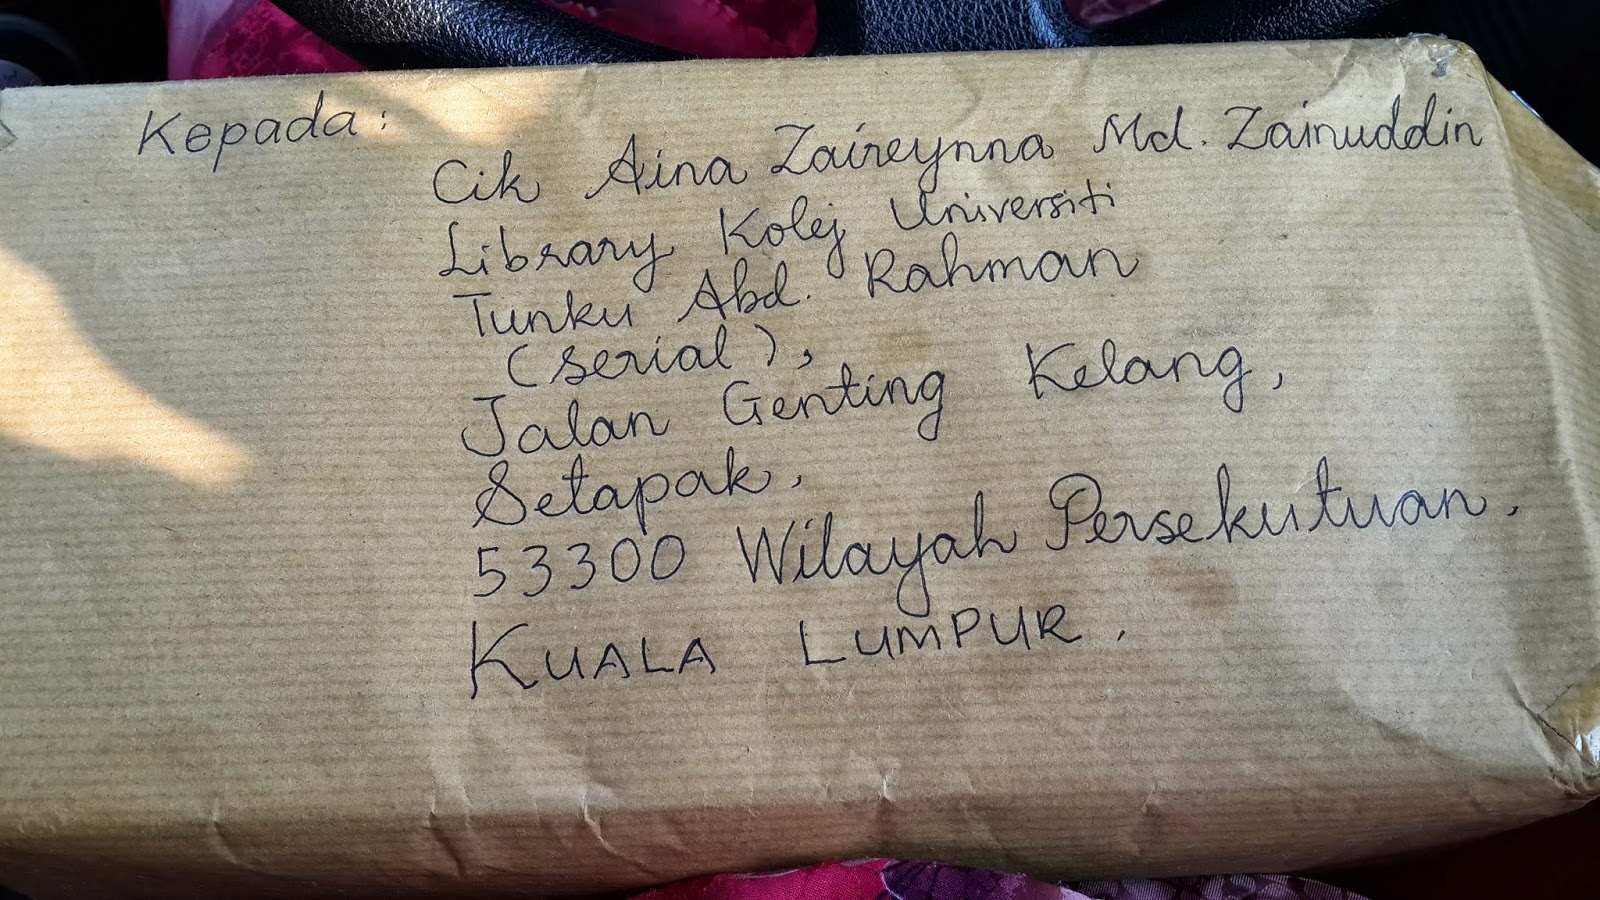 Kepada:
Cik Aina Zaireynna Md. Zainuddin
Library Kolej Universiti
Tunku Abd. Rahman
(serial),
Jalan Genting Kelang,
Setapak,
53300 Wilayah Persekutuan,
KUALA LUMPUR.